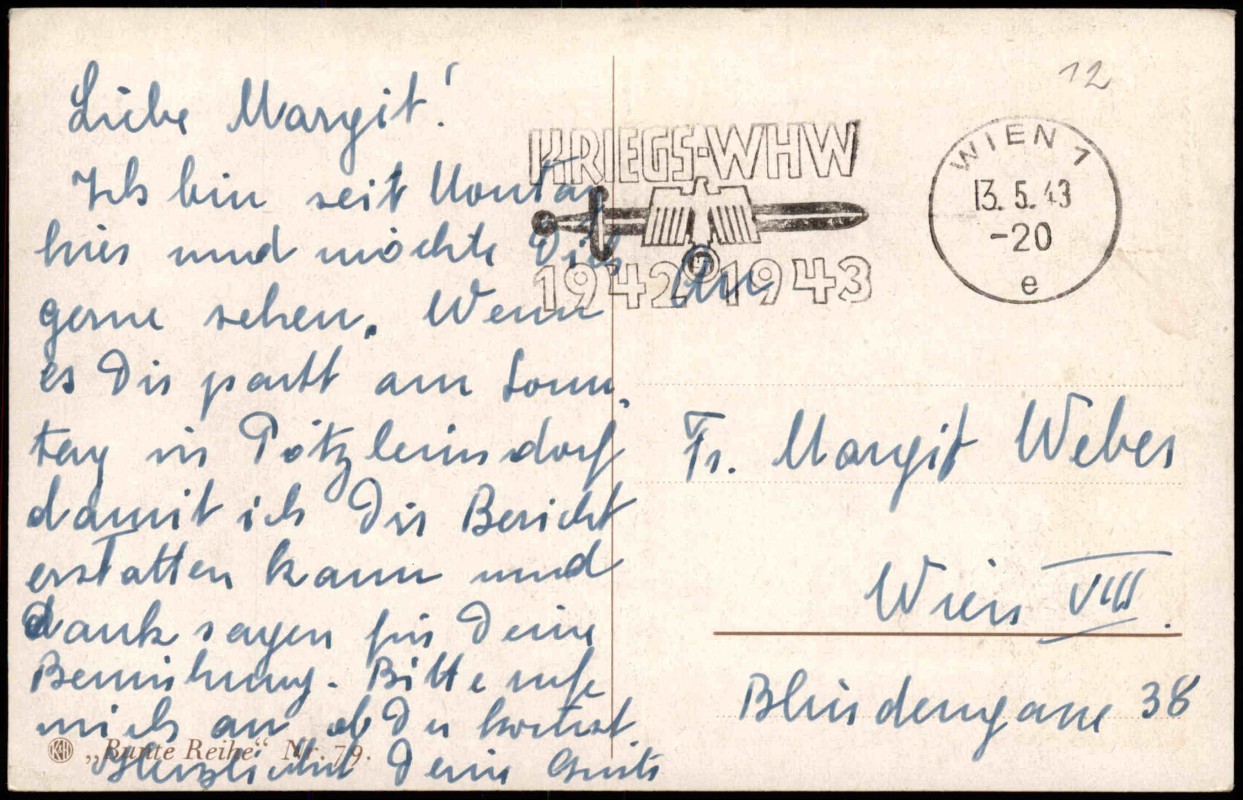 Liebe Margit!
Ich bin seit Montag
hier und möchte Dich
gerne sehen. Wenn
es Dir paßt am Sonn-
tag in Pötzleinsdorf
damit ich Dir Bericht
erstatten kann und
dank sagen für Deine
Bemühung. Bitte rufe
mich an ob Du kommst.
Herzlichst Deine
„Bunte Reihe“ Nr. 79.
12
KRIEGS-WHW
1942 1943
WIEN 1
13. 5. 43
-20
e
An
Fr. Margit Weber
Wien VIII.
Blindengasse 38